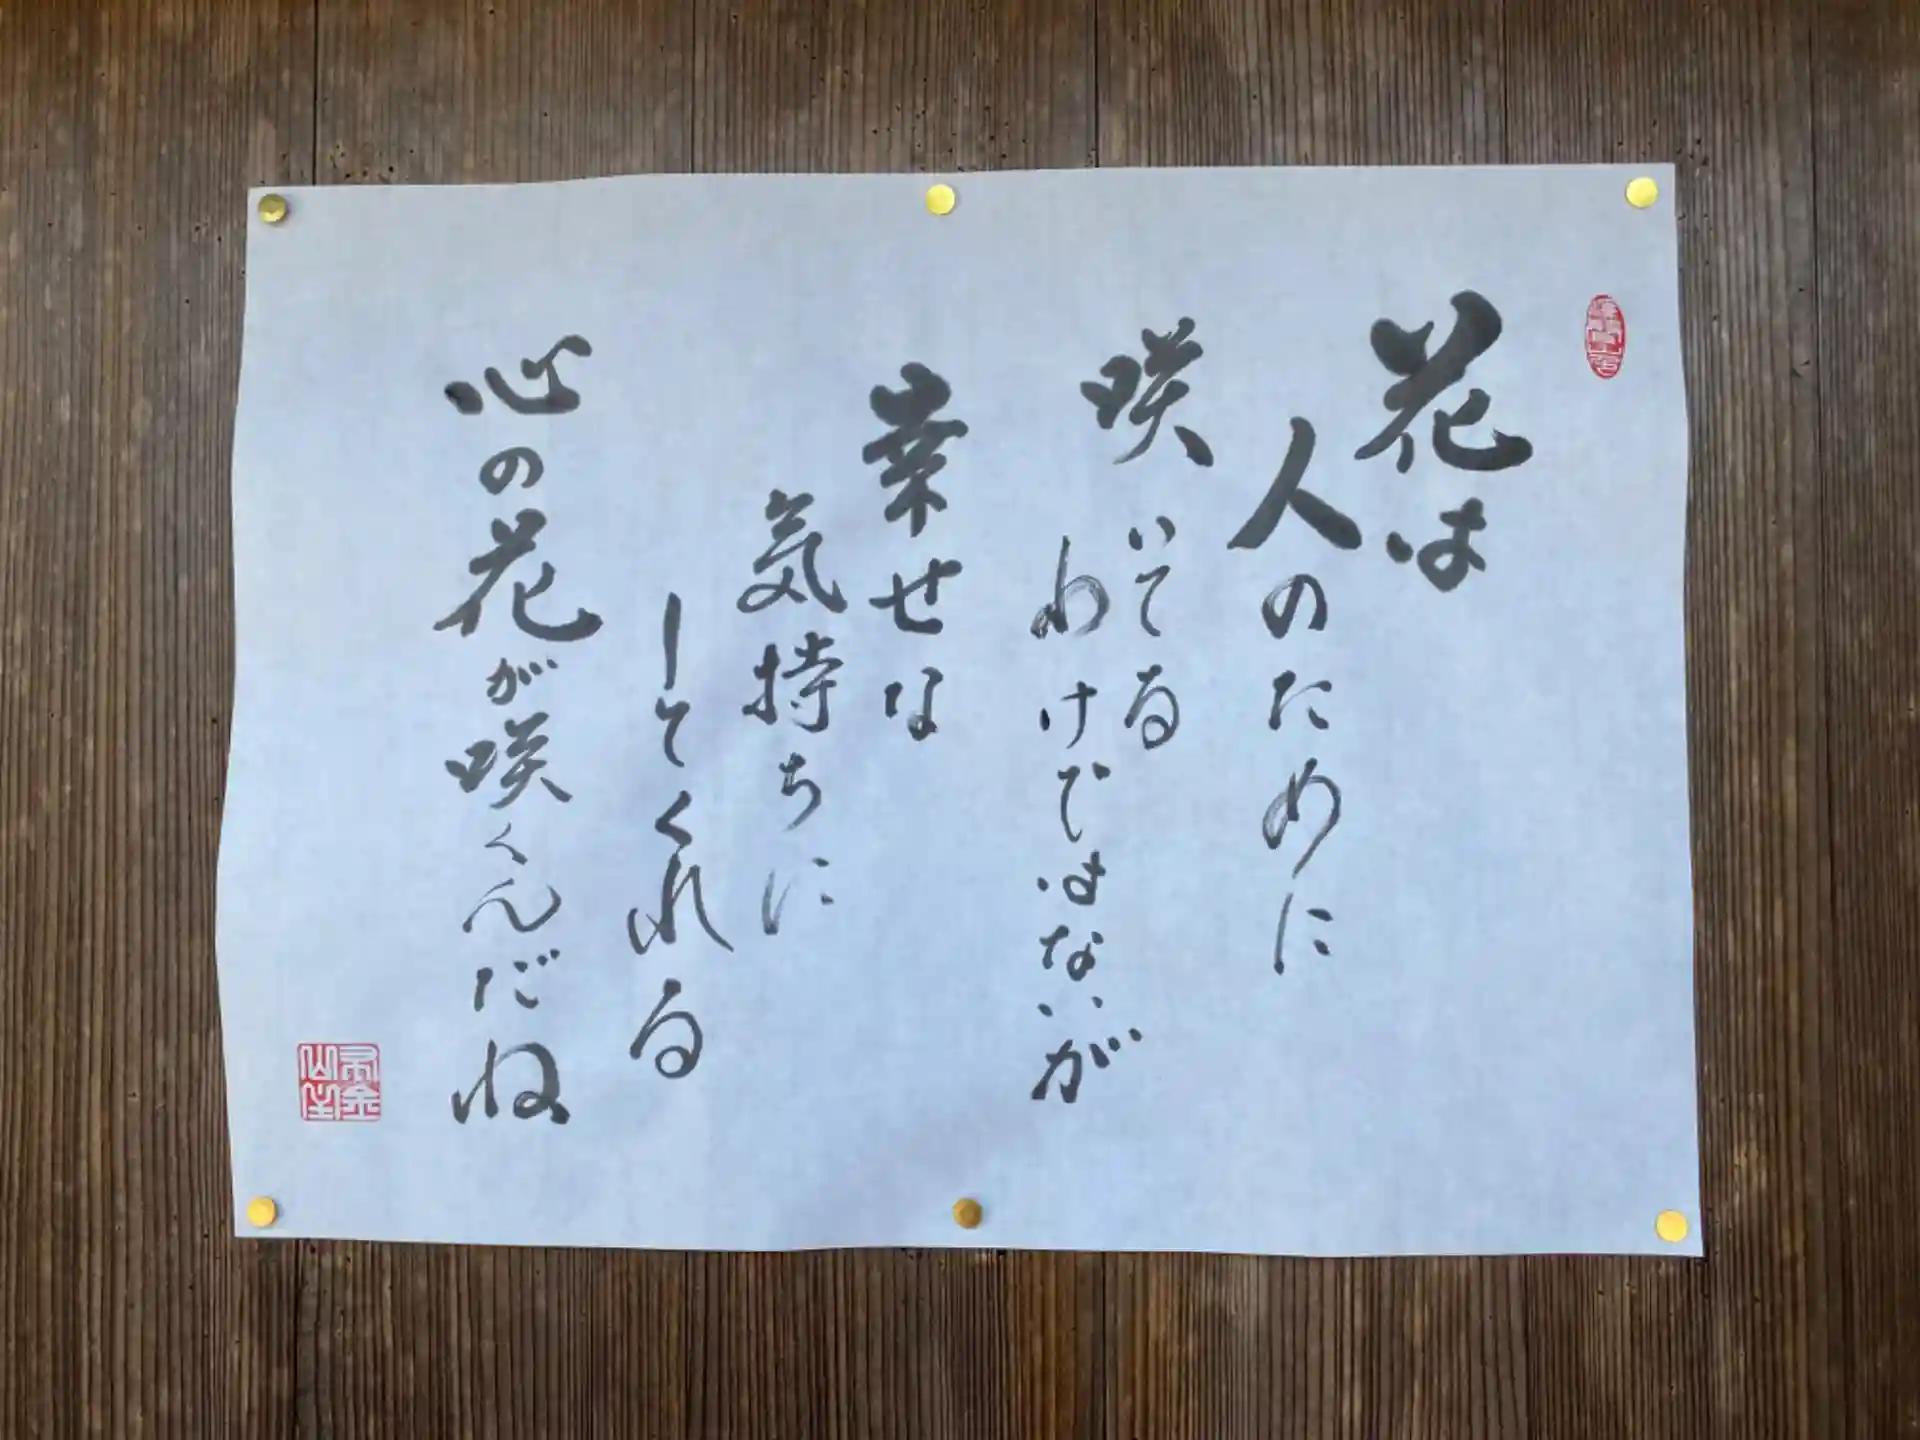 花は
人のために
咲いてる
わけではないが
幸せな
気持ちに
してくれる
心の花が咲くんだね